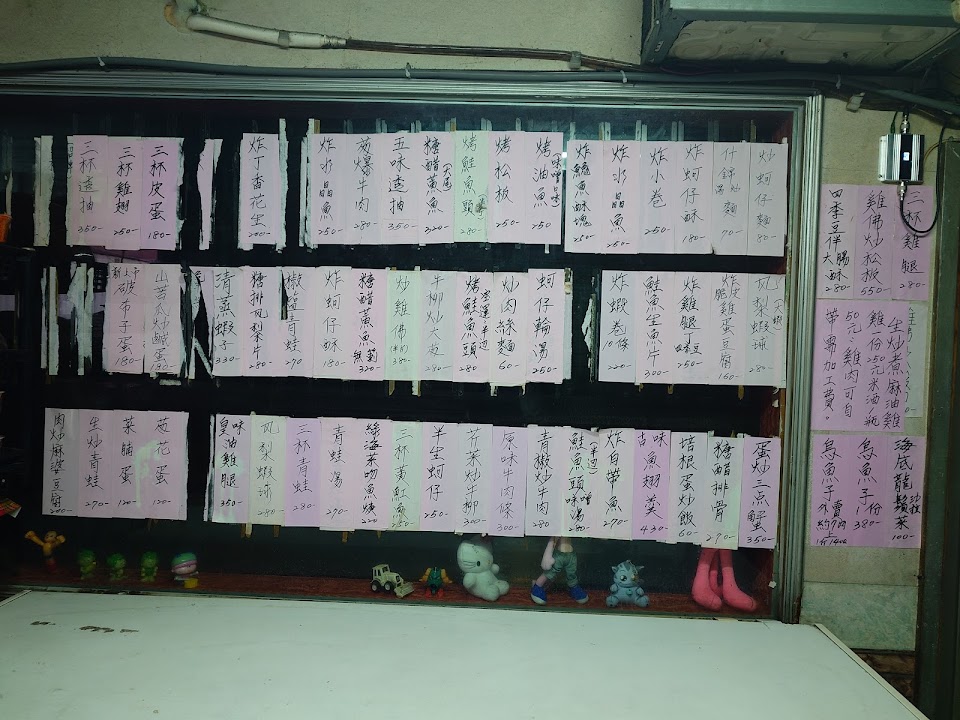 三杯透抽 350-
三杯雞翅 250-
三杯皮蛋 180-
炸丁香花生 200-
炸水晶魚 250-
蔥爆牛肉 280-
五味透抽 350-
糖醋黃魚 320-
烤鮭魚頭 280-
烤松板 250
烤油魚(味噌) 250
炸鱈魚酥塊 250-
炸水晶魚 250-
炸小卷 250-
炸蚵仔酥 180-
什錦炒麵 70-
炒蚵仔麵 80-
新上市
破布子蛋 180-
山苦瓜炒鹹蛋 180-
清蒸蝦子 330-
糖排鳳梨片 280
椒鹽青蛙 270
炸蚵仔酥 180-
糖醋黃魚 320-
炒雞佛 380-
牛柳炒大麵 290-
烤鮭魚頭 280
炒肉絲麵 50-
蚵仔輪湯 250-
炸蝦卷10條 220-
鮭魚生魚片 300-
炸雞腿 250-
炸皮蛋豆腐 150-
鳳梨蝦球 280-
肉炒麻婆豆腐 200-
生炒青蛙 270-
菜脯蛋 120-
蔥花蛋 120-
皇味油雞腿 350-
鳳梨蝦球 280-
三杯青蛙 280-
青蛙湯 290-
絲海茉吻魚羹 220
三杯黃魟
羊生蚵仔 250-
芥菜炒牛柳 300-
原味牛肉條 300-
青椒炒牛肉 280
鮭魚頭味噌湯 280-
炸白帶魚 270-
古味魚翅羹 430-
培根蛋炒飯 60-
糖醋排骨 290-
蛋炒三点蟹 350-
三杯雞腿 280-
雞佛炒松板 550-
四季豆伴大腸酥 280-
生炒煮麻油雞
雞份250元米酒瓶
50元,雞肉可自
帶需加工費。
海底龍鬚菜 沙拉 100-
烏魚子1份 380-
烏魚子外賣